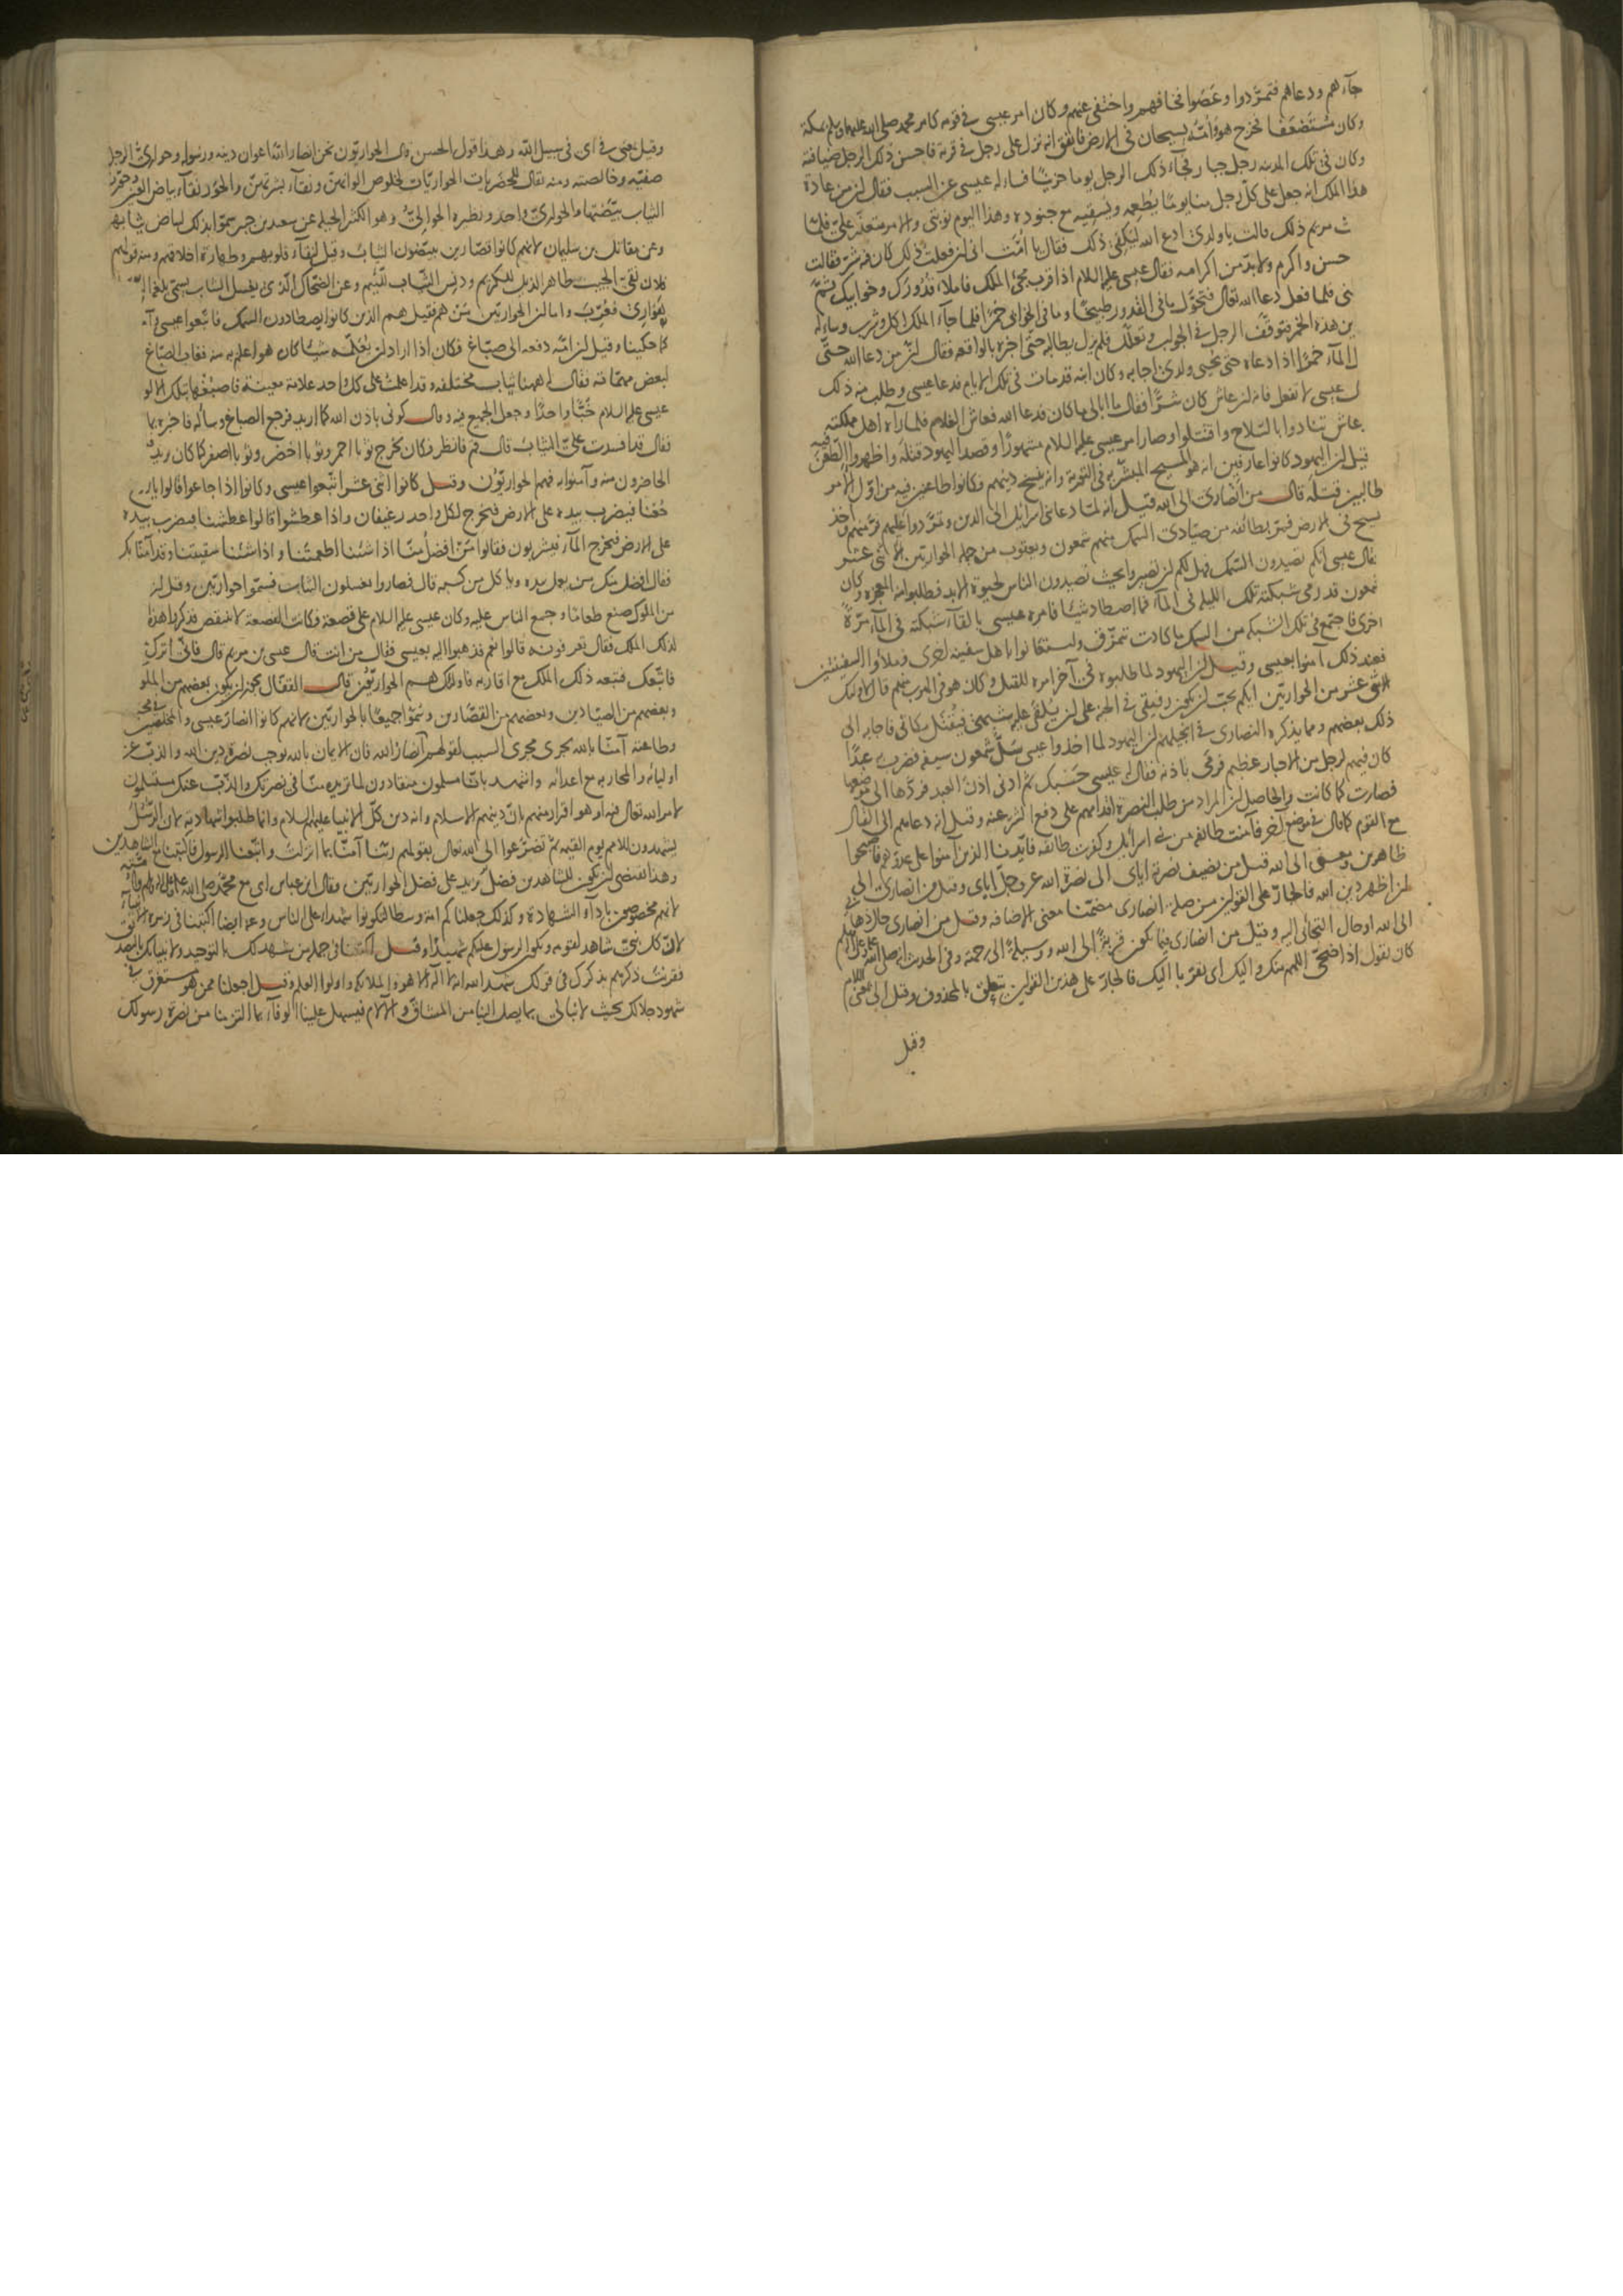 جآءهم ودعاهم فتمرّدوا وعَصَوا فخافهم واختفى عنهم وكان امر عيسى فى قومه كامر محمد صلى الله عليهما وسلم بمكة
وكان مُستَضعَفا فخرج هو واُمّه يسيحان فى الارض فاتفق انه نزل على رجل فى قرية فاحسن ذلك الرجل ضيافته
وكان فى تلك المدينة رجل جبار فجآء ذلك الرجل يوما حزينًا فساله عيسى عن السبب فقال لن من عادة
هذا الملك انه جعل على كل رجل منا يومًا يُطعِمه ويسقيه مع جنوده وهذا اليوم نوبتى والامر متعذّر علىّ فلمّا
ث مريم ذلك قالت يا ولدى ادع الله ليكفى ذلك فقال يا اُمّت انى لن فعلت ذلك كان فيه شرّ فقالت
حسن واكرم ولا بدّ من اكرامه فقال عيسى عليه السلام اذا قرب مجئ الملك فاملأ قُدُورَك وخوابيك ثمّ
نى فلما فعل دعا الله تعالى فتحوّل ما فى القدور طبيخًا وما فى الخوابى خمرًا فلما جآء الملك اكل وشرب وساله
ين هذه الخمر فتوقّف الرجل فى الجواب وتعلّل فلم يزل يطالبه حتى اخبره بالواقعة فقال لنّ من دعا الله حتّى
ل المآء خمرًا اذا دعاه حتى يحيى ولدى اجابه وكان ابنه قد مات فى تلك الايام فدعا عيسى وطلب منه ذلك
ل عيسى لا تفعل فانه لن عاش كان شرًّا فقال ما ابالى ما كان فدعا الله فعاش الغلام فلما رآه اهل مملكته
عاش تنادوا بالسّلاح واقتتلوا وصار امر عيسى عليه السلام مشهورًا وقصد اليهود قتله واظهروا الطّعن فيه
قيل لن اليهود كانوا عارفين انه هو المسيح المبشّر به فى التورية وانه ينسخ دينهم فكانوا طاعنين فيه من اوّل الامر
طالبين قتله قال من انصارى الى الله قيل انه لمّا دعا بنى اسرائيل الى الدين وتمرّدوا عليهم فرّ منهم واخذ
يسيح فى الارض فمرّ بطائفة من صيّادى السمك منهم شمعون ويعقوب من جملة الحواريين الاثنى عشر
فقال عيسى انكم تصيدون السّمك فهل لكم لن تصيروا بحيث تصيدون الناس لحيوة الابد فطلبوا منه المعجزة وكان
شمعون قد رمى شبكته تلك الليلة فى المآء فما اصطاد شيئًا فامره عيسى بالقآء شبكته فى المآء مرّةً
اخرى فاجتمع فى تلك الشبكة من السمك ما كادت تتمزّق واستعانوا باهل سفينة اخرى وملأوا السفينتين
فعند ذلك آمنوا بعيسى وقيل لن اليهود لما طلبوه فى آخر امره للقتل وكان هو فى الهرب منهم قال لاولئك
الاثنى عشر من الحواريين ايكم يحبّ لن يكون رفيقى فى الجنة على لن يُلقى عليه شبهى فيُقتَل مكانى فاجابه الى
ذلك بعضهم ومما يذكره النصارى فى انجيلهم لن اليهود لما اخذوا عيسى سلّ شمعون سيفه فضرب عبدًا
كان فيهم لرجل من الاحبار عظيم فرمى باذنه فقال له عيسى حَسْبك ثم ادنى اذن العبد فردّها الى موضعها
فصارت كما كانت والحاصل لن المراد من طلب النصرة اقدامهم على دفع الشرّ عنه وقيل انه دعاهم الى القتال
مع القوم كما قال فى موضع آخر فآمنت طائفة من بنى اسرائيل وكفرت طائفة فايّدنا الذين آمنوا على عدوّهم فاصبحوا
ظاهرين ومعنى الى الله قيل من يضيف نصرته اياى الى نصرة الله عز وجلّ اياى وقيل من انصارى الى
لن اظهر دين الله فالجارّ على القولين من صلة انصارى مضمّنا معنى الاضافة وقيل من انصارى حال ذهابى
الى الله او حال التجائى اليه وقيل من انصارى فيما يكون قربةً الى الله ووسيلةً الى رحمته وفى الحديث انه صلى الله عليه وسلم
كان يقول اذا ضحّى اللهم منك واليك اى تقربا اليك فالجارّ على هذين القولين يتعلّق بالمحذوف وقيل الى بمعنى اللام
وقيل
وقيل بمعنى فى اى فى سبيل الله وهذا قول الحسن قال الحواريّون نحن انصار الله اعوان دينه ورسوله وحوارىّ الرجل
صفيّه وخالصته ومنه يقال للحَضَريات الحواريّات لخلوص الوانهنّ ونقآء بشرتهنّ والحَوَر نقآء بياض العين وحوّرت
الثياب بيّضتها والحوارىّ واحد ونظيره الحوالىّ وهو الكثير الحيلة عن سعيد بن جبير سمّوا بذلك لبياض ثيابهم
وعن مقاتل بن سليمان لانهم كانوا قصّارين يبيّضون الثيابَ وقيل لنقآء قلوبهم وطهارة اخلاقهم ومنه قولهم
فلان نقىّ الجيب طاهر الذيل للكريم ودنس الثياب للّئيم وعن الضحّاك الّذى يغسل الثياب يسمّى بلغة
هُوارِى فعُرّب واما لن الحواريين مَن هم فقيل هم الذين كانوا يصطادون السمك فاتّبعوا عيسى وآ
كما حكينا وقيل لن امّه دفعته الى صبّاغ فكان اذا اراد لن يُعَلّمه شيئًا كان هو اعلم به منه فغاب الصبّاغ
لبعض مهمّاته فقال ههنا ثياب مختلفة وقد اعلمتُ على كل واحد علامة معينة فاصبُغها بتلك الالو
عيسى عليه السلام حُبًّا واحدًا وجعل الجميع فيه وقال كونى باذن الله كما اريد فرجع الصباغ وساله فاخبره بما
فقال قد افسدت علىّ الثيابَ قال قم فانظر فكان يُخرج ثوبا احمر وثوبا اخضر وثوبا اصفر كما كان يريد
الحاضرون منه وآمنوا به فهم الحواريّون وقيل كانوا اثنى عشر اتّبعوا عيسى وكانوا اذا جاعوا قالوا يا روح
جُعنا فيضرب بيده على الارض فيخرج لكل واحد رغيفان واذا عطشوا قالوا عطشنا فيضرب بيده
على الارض فيخرج المآء فيشربون فقالوا من افضلُ منّا اذا شئنا اطعمتنا واذا شئنا سقيتنا وقد آمنّا بك
فقال افضل منكم من يعمل بيده وياكل من كسبه قال فصاروا يغسلون الثياب فسمّوا حواريّين وقيل لن
من الملوك صنع طعامًا وجمع الناس عليه وكان عيسى عليه السلام على قصعة فكانت القصعة لا تنقص فذكر هذه
لذلك الملك فقال تعرفونه قالوا نعم فذهبوا اليه بعيسى فقال من انت قال عيسى بن مريم قال فانّى اترك
فاتّبعك فتبعه ذلك الملك مع اقاربه فاولئك هم الحواريّون قال القفّال يجوز لن يكون بعضهم من الملو
وبعضهم من الصيّادين وبعضهم من القصّارين وسُمّوا جميعًا بالحواريّين لانهم كانوا انصار عيسى والمخلصين فى محبته
وطاعته آمنّا بالله يجرى مجرى السبب لقولهم انصارُ الله فان الايمان بالله يوجب نصرة دين الله والذبّ عن
اوليائه والمحاربة مع اعدائه واشهد بانّا مسلمون منقادون لما تريده منّا فى نصرتك والذّبّ عنك مستسلمون
لامر الله تعالى فيه او هو اقرار منهم بانّ دينهم الاسلام وانه دين كلّ الانبيا عليهم السلام وانما طلبوا شهادته لان الرسُلَ
يشهدون للامم يوم القيمة ثمّ تضرّعوا الى الله تعالى بقولهم ربّنا آمنّا بما انزلتَ واتّبعنا الرسول فاكتبنا مع الشاهدين
وهذا يقتضى لن يكون للشاهدين فضل يزيد على فضل الحواريّين وقال ابن عباس اى مع محمّد صلى الله عليه وعلى آله وسلم وامّته
لانهم مخصوصون بادآء الشهادة وكذلك جعلناكم امة وسطا لتكونوا شهدآء على الناس وعنه ايضا اكتبنا فى زمرة الانبيآء
لانّ كل نبىّ شاهد لقومه ويكون الرسول عليكم شهيدًا وقيل اكتبنا فى جملة من شهد لك بالتوحيد ولانبيائك بالتصديق
فقرنتَ ذكرهم بذكرك فى قولك شهد الله انه لا اله الا هو والملائكة واولوا العلم وقيل اجعلنا ممن هو مستغرق فى
شهود جلالك بحيث لا نبالى بما يصل الينا من المشاقّ والآلام فيسهل علينا الوفآء بما التزمنا من نصرة رسولك